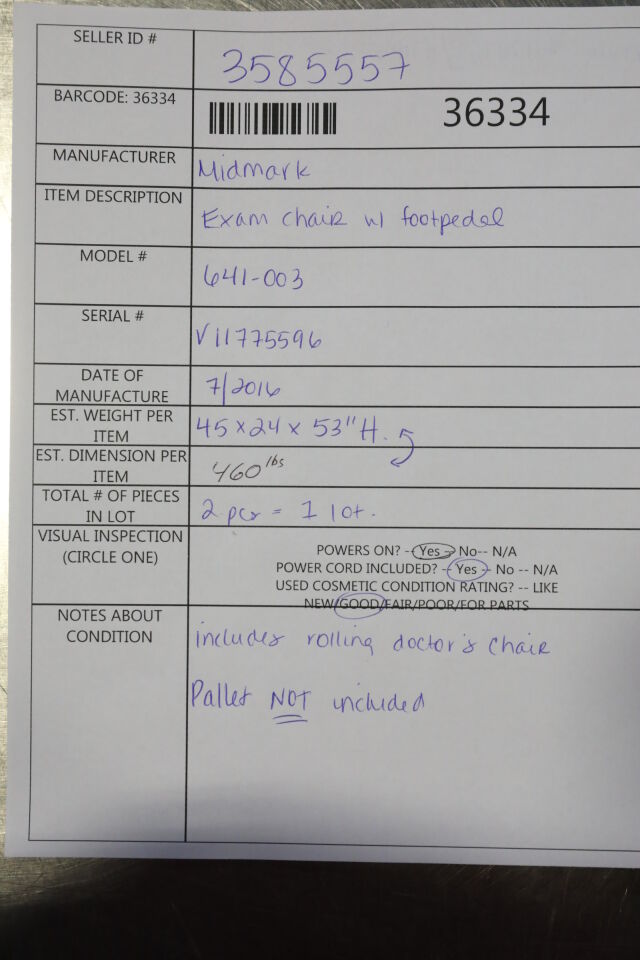 SELLER ID #
3585557
BARCODE: 36334
36334
MANUFACTURER
Midmark
ITEM DESCRIPTION
Exam chair w/ footpedal
MODEL #
641-003
SERIAL #
V11775596
DATE OF
MANUFACTURE
7/2016
EST. WEIGHT PER
ITEM
45 x 24 x 53" H.
EST. DIMENSION PER
ITEM
460 lbs
TOTAL # OF PIECES
IN LOT
2 pcs = 1 lot.
VISUAL INSPECTION
(CIRCLE ONE)
POWERS ON? -- Yes -- No-- N/A
POWER CORD INCLUDED? -- Yes -- No -- N/A
USED COSMETIC CONDITION RATING? -- LIKE
NEW/GOOD/FAIR/POOR/FOR PARTS
NOTES ABOUT
CONDITION
includes rolling doctor's chair
Pallet NOT included